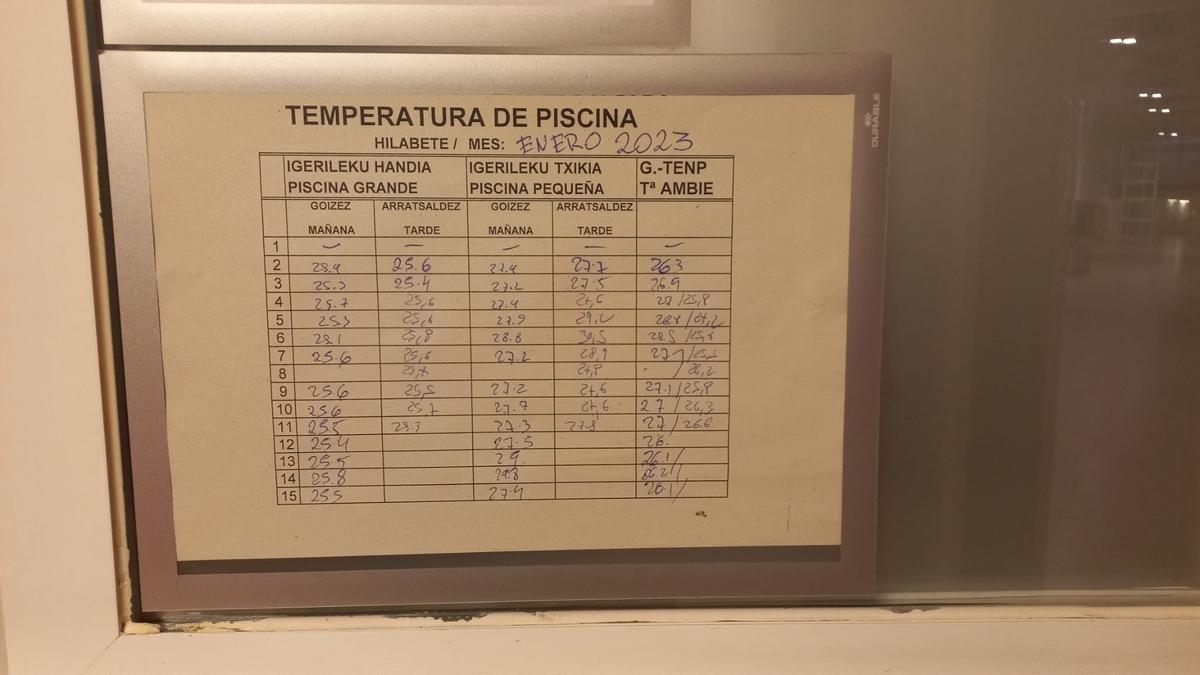 TEMPERATURA DE PISCINA
HILABETE / MES: ENERO 2023
IGERILEKU HANDIA IGERILEKU TXIKIA G.-TENP
PISCINA GRANDE PISCINA PEQUEÑA Tª AMBIE
GOIZEZ ARRATSALDEZ GOIZEZ ARRATSALDEZ
MAÑANA TARDE MAÑANA TARDE
1 – – – – –
2 25.6 27.4 27.7 26.3
3 25.4 27.2 27.5 26.9
4 25.7 25,6 27.4 27,6 27 / 25,8
5 25,6 27.9 29,2
6 28.1 25,8 28.8 30,5
7 25.6 25,6 27.2 28,9
8 27,8 / 26,2
9 25.6 25,5 27.2 27,6 27.1 / 25,8
10 25.6 25,7 27.7 27,6 27 / 26,3
11 25.5 28.3 27.3 27.8 27 / 26.6
12 25.4 27.5 26.
13 25.5 29 26.1 /
14 25.8 28.8
15 25.5 27.4 26.1 /
DURABLE